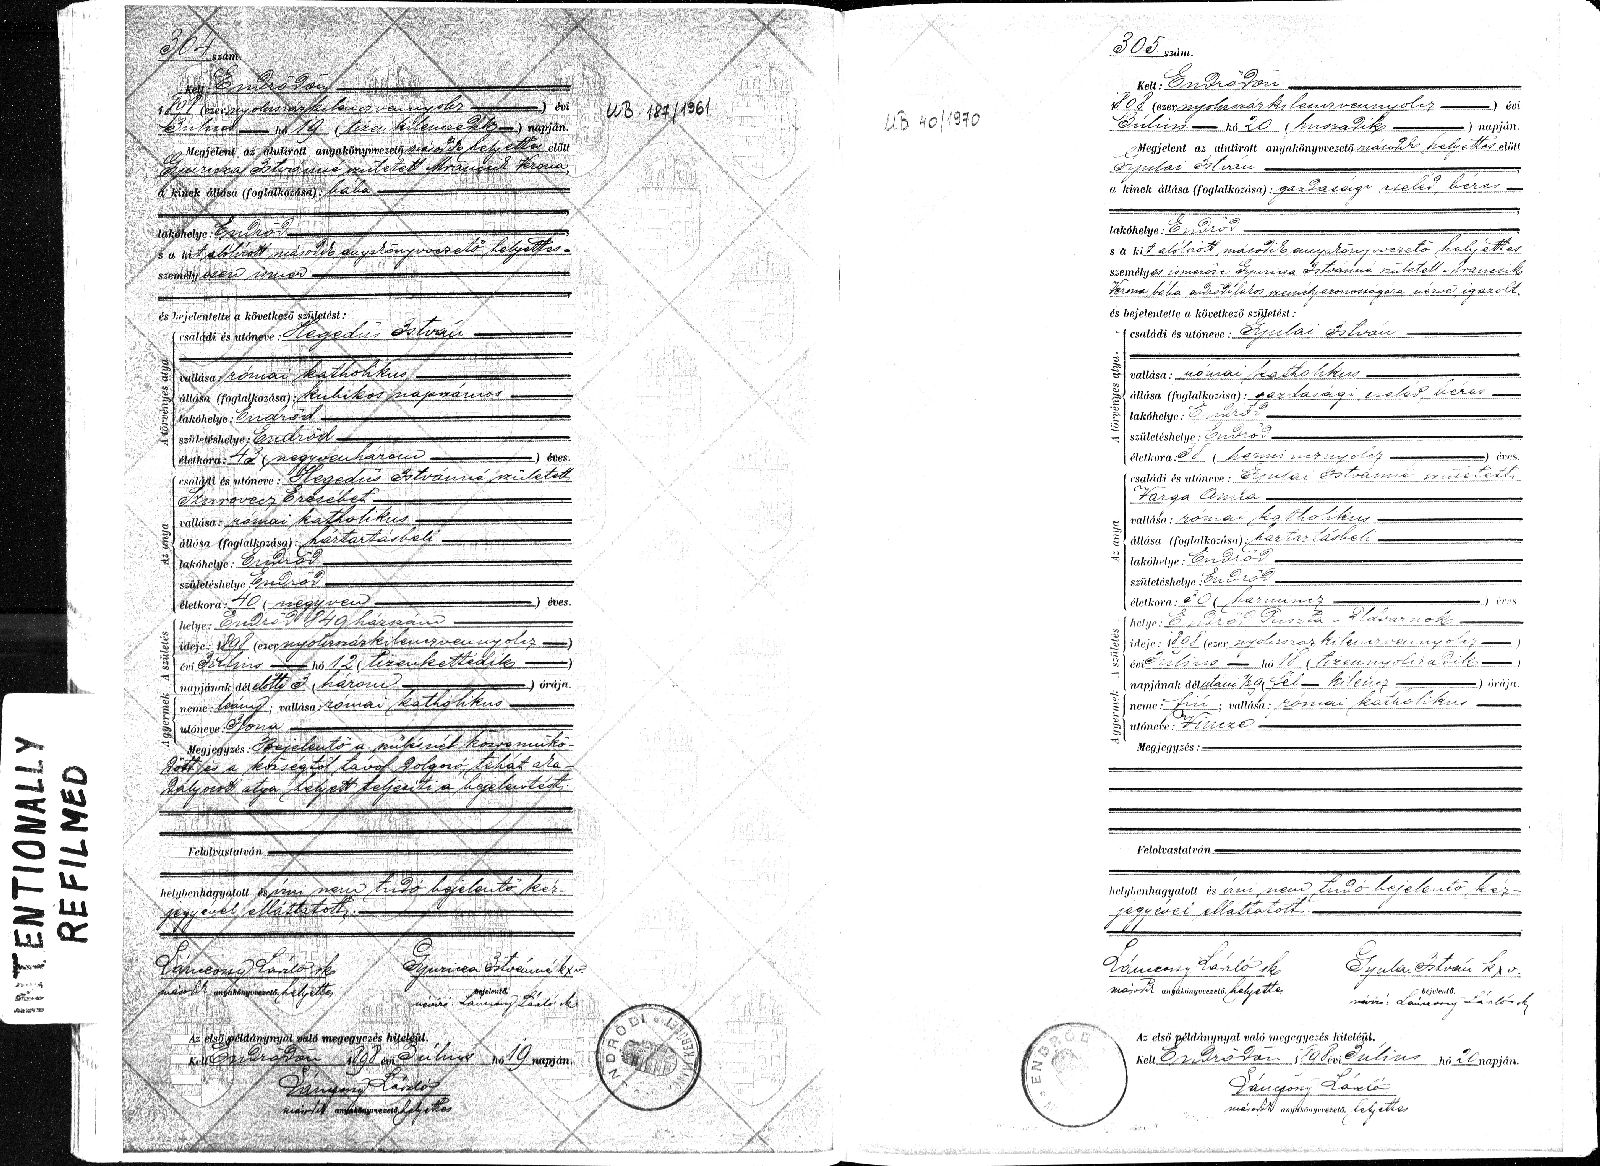 INTENTIONALLY
REFILMED
304 szám.
Kelt Endrődön
1898 (ezernyolcszázkilenczvennyolcz) évi
Július hó 19 (tizenkilenczedik) napján.
Megjelent az alulirott anyakönyvvezető második helyettes előtt
Gyuricza Istvánné született
a kinek állása (foglalkozása): bába
lakóhelye: Endrőd
s a kit alólirott második anyakönyvvezető helyettes
személyesen ismer
és bejelentette a következő születést:
A törvényes atya
családi és utóneve: Hegedüs István
vallása: római katholikus
állása (foglalkozása): kubikos napszámos
lakóhelye: Endrőd
születéshelye: Endrőd
életkora: 43 (negyvenhárom) éves.
Az anya
családi és utóneve: Hegedüs Istvánné született
Szurovecz Erzsébet
vallása: római katholikus
állása (foglalkozása): háztartásbeli
lakóhelye: Endrőd
születéshelye: Endrőd
életkora: 40 (negyven) éves.
A születés
helye: Endrőd 949 házszám
ideje: 1898 (ezernyolcszázkilenczvennyolcz)
évi Július hó 12 (tizenkettedik)
napjának délelőtti 3 (három) órája.
A gyermek
neme: leány; vallása: római katholikus
utóneve: Ilona
Megjegyzés: Bejelentő a szülésnél közremükö-
dött és a községtől távol dolgozó, tehát aka-
dályozott atya helyett teljesiti a bejelentést.
Felolvastatván
helybenhagyatott és irni nem tudó bejelentő kéz-
jegyével elláttatott.
Lánczosy László sk
második anyakönyvvezető, helyettes
Gyuricza Istvánné k x v.
bejelentő.
névíró: Lánczosy László sk
Az első példánynyal való megegyezés hiteléül.
Kelt Endrődön 1898 évi Július hó 19 napján.
Lánczosy László
második anyakönyvvezető, helyettes
UB 187/1961
UB 40/1970
305 szám.
Kelt: Endrődön
1898 (ezernyolcszázkilenczvennyolcz) évi
Július hó 20 (huszadik) napján.
Megjelent az alulirott anyakönyvvezető második helyettes előtt
Gyulai István
a kinek állása (foglalkozása): gazdasági cseléd, béres
lakóhelye: Endrőd
s a kit alólirott második anyakönyvvezető helyettes
személyes ismerőse Gyuricza Istvánné született
bába endrődi lakos személyazonosságára nézve igazolt,
és bejelentette a következő születést:
A törvényes atya.
családi és utóneve: Gyulai István
vallása: római katholikus
állása (foglalkozása): gazdasági cseléd béres
lakóhelye: Endrőd
születéshelye: Endrőd
életkora: 38 (harmincznyolcz) éves.
Az anya
családi és utóneve: Gyulai Istvánné született
Varga
vallása: római katholikus
állása (foglalkozása): háztartásbeli
lakóhelye: Endrőd
születéshelye: Endrőd
életkora: 30 (harmincz) éves
A születés
helye: Endrőd Puszta
ideje: 1898 (ezernyolcszázkilenczvennyolcz)
évi Július hó 18 (tizennyolczadik)
napjának délutáni 1/2 9 (fél kilencz) órája.
A gyermek
neme: fiú; vallása: római katholikus
utóneve: Vincze
Megjegyzés:
Felolvastatván
helybenhagyatott és irni nem tudó bejelentő kéz-
jegyével elláttatott.
Lánczosy László sk
második anyakönyvvezető, helyettes
Gyulai István k x v.
bejelentő.
névíró: Lánczosy László sk
ENDRŐD
Az első példánynyal való megegyezés hiteléül.
Kelt Endrődön, 1898 évi Július hó 20 napján.
Lánczosy László
második anyakönyvvezető, helyettes